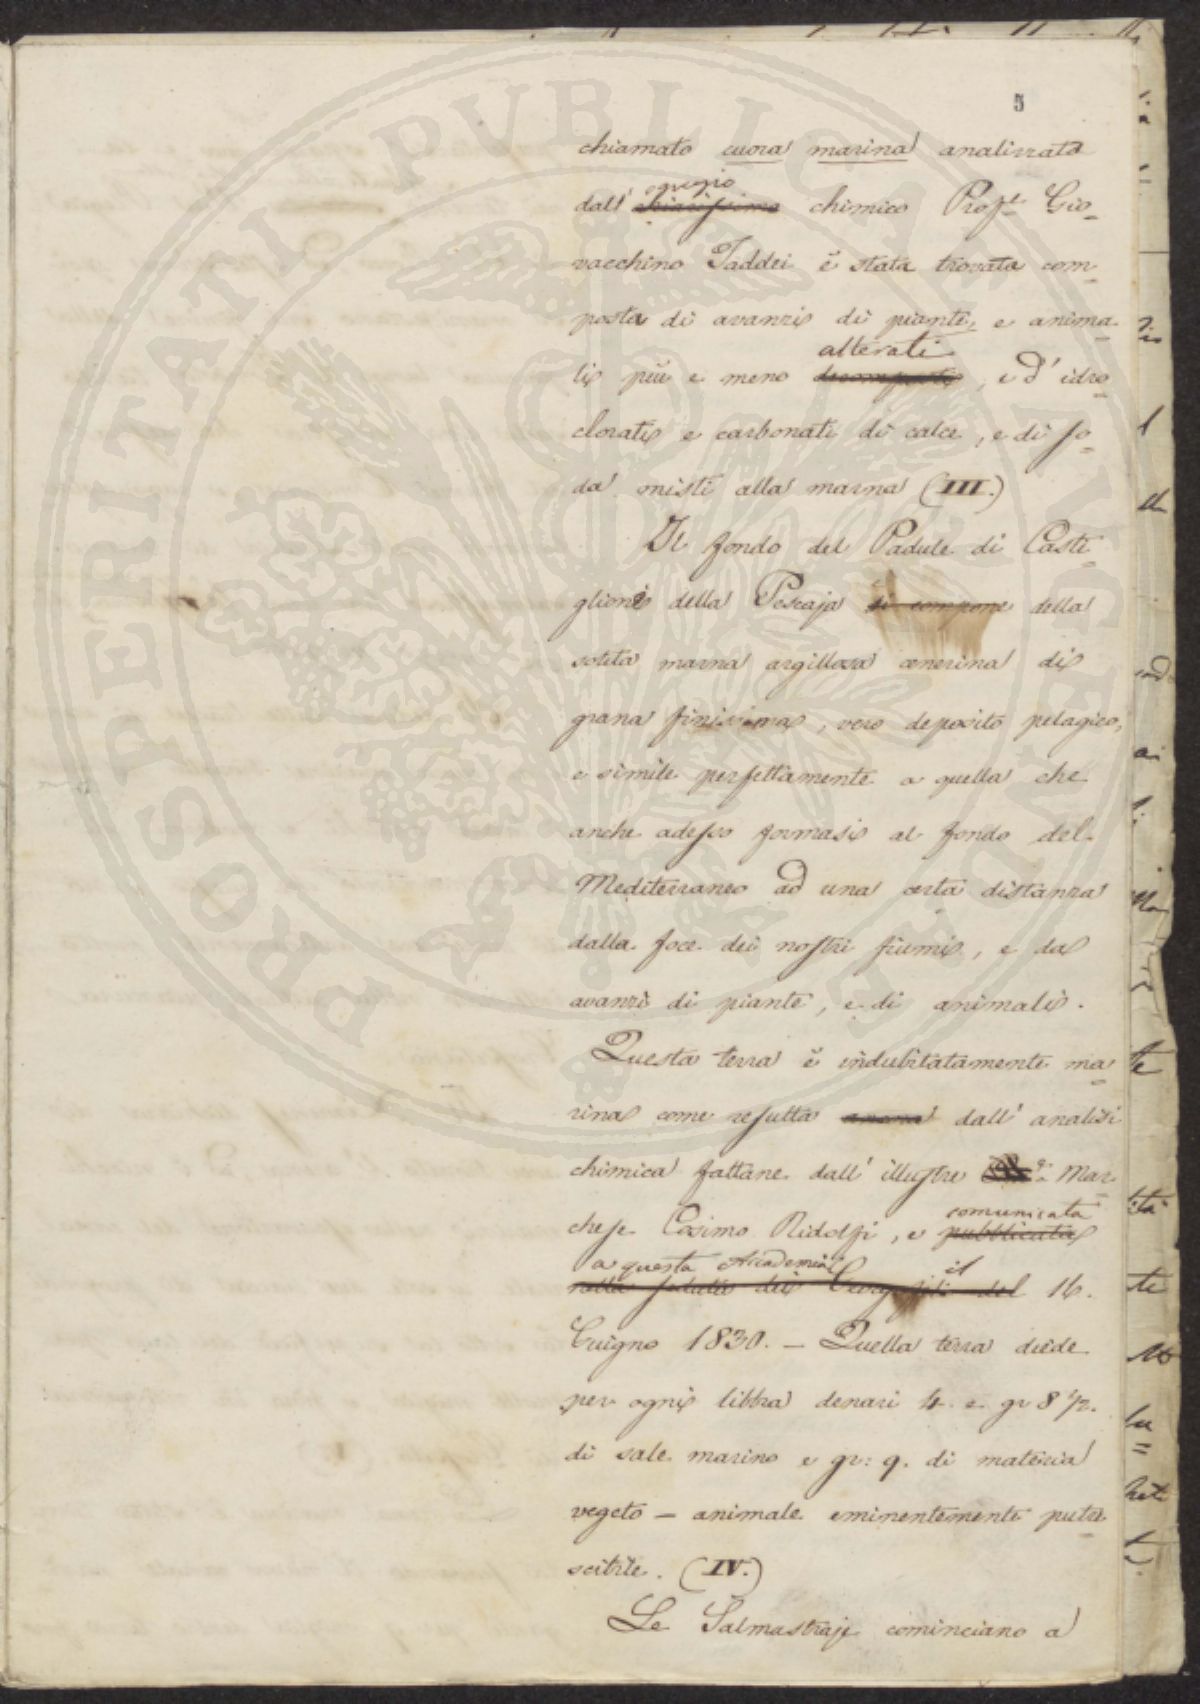 PROSPERITATI PUBLICAE AUGENDAE
5
chiamato cuora marina analizzata
egregio
dall' chiarissimo chimico Prof.e Gio-
vacchino Taddei è stata trovata com-
posta di avanzi di piante, e anima-
alterati
li più e meno decomposti, e d' idro-
clorati e carbonati di calce, e di so-
da misti alla marna (III.)
Il fondo del Padule di Casti-
glione della Pescaja si compone della
solita marna argillosa cenerina di
grana finissima, vero deposito pelagico,
e simile perfettamente a quella che
anche adesso formasi al fondo del
Mediterraneo ad una certa distanza
dalla foce dei nostri fiumi, e da
avanzi di piante, e di animali.
Questa terra è indubitatamente ma-
rina come resulta ancora dall' analisi
chimica fattane dall' illustre Mar-
comunicata
chese Cosimo Ridolfi, e pubblicata
a questa Accademia il
nella seduta dei Georgofili del 16.
Giugno 1830. — Quella terra diede
per ogni libbra denari 4. e gr 8 1/2.
di sale marino e gr: 9. di materia
vegeto — animale eminentemente putre-
scibile. (IV.)
Le Salmastraje cominciano a